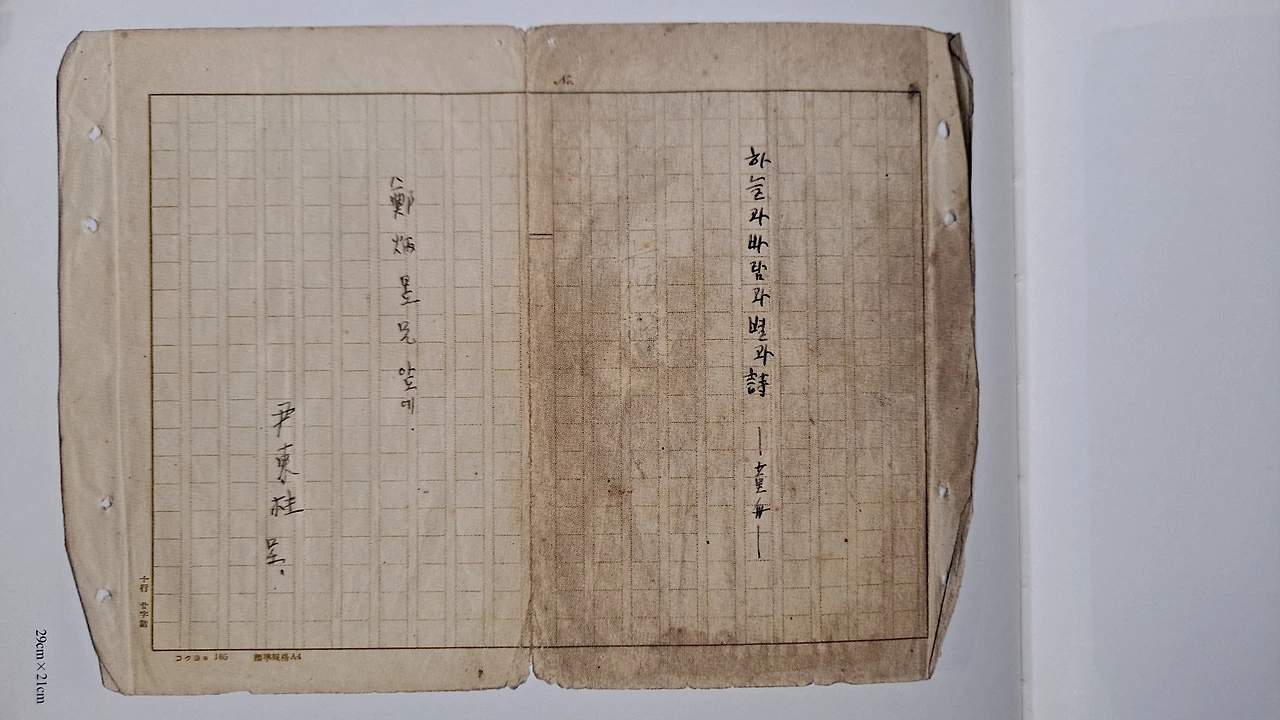 No.
하늘과바람과별과詩 ─童舟─
鄭炳昱兄 앞에.
尹東柱 呈.
十行 廿字詰
コクヨ 165 標準規格A4
29cm×21cm